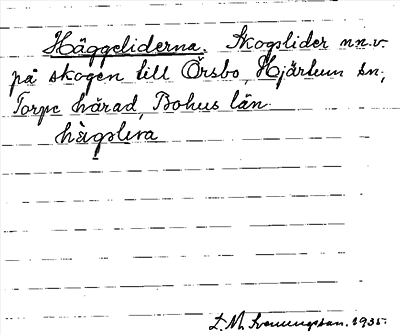 Häggeliderna. Skogslider nn.v.
på skogen till Örsbo, Hjärtum sn,
Torpe härad, Bohus län.
hägsleva
D. M. Svenningsson. 1935.